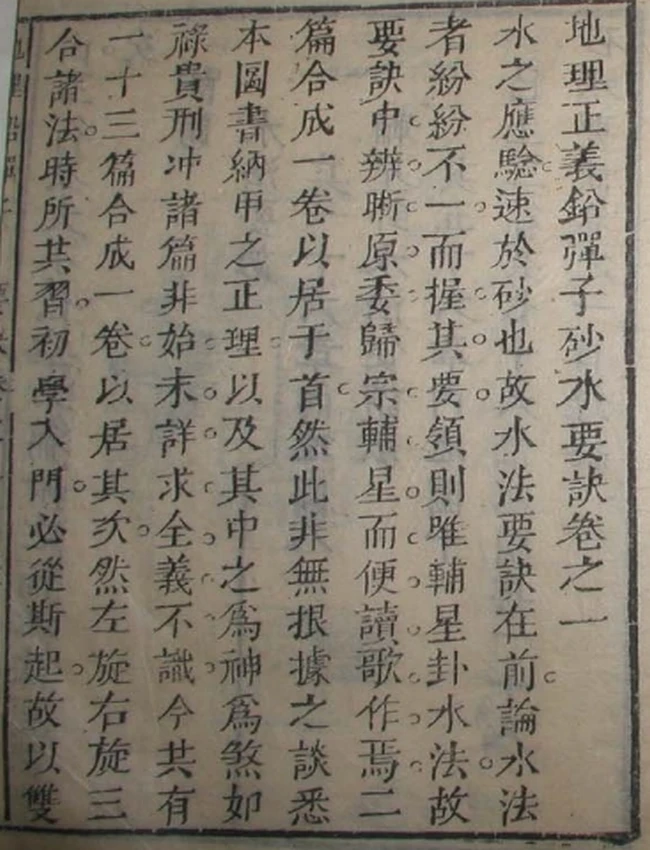 地理正義鉛彈子砂水要訣卷之一
水之應驗速於砂也故水法要訣在前論水法
者紛紛不一而握其要領則唯輔星卦水法故
要訣中辨晰原委歸宗輔星而便讀歌作焉二
篇合成一卷以居于首然此非無根據之談悉
本圖書納甲之正理以及其中之為神為煞如
祿貴刑冲諸篇非始末詳求全義不識今共有
一十三篇合成一卷以居其次然左旋右旋三
合諸法時所共習初學入門必從斯起故以雙